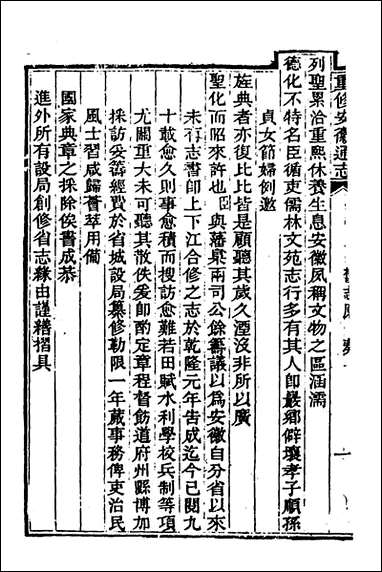 重修安徽通志
舊志原奏
一
列聖累洽重熙休養生息安徽夙稱文物之區涵濡
德化不特名臣循吏儒林文苑志行多有其人卽巖鄉僻壤孝子順孫
貞女節婦例邀
旌典者亦復比比皆是顧聽其歲久湮沒非所以廣
聖化而昭來許也臣與藩臬兩司公餘籌議以爲安徽自分省以來
未有志書卽上下江合修之志於乾隆元年告成迄今已閱九
十載愈久則事愈積而搜訪愈難若田賦水利學校兵制等項
尤關重大未可聽其散佚爰卽酌定章程督飭道府州縣博加
採訪妥籌經費於省城設局纂修勒限一年蕆事務俾吏治民
風士習咸歸薈萃用備
國家典章之採除俟書成恭
進外所有設局創修省志緣由謹繕摺具